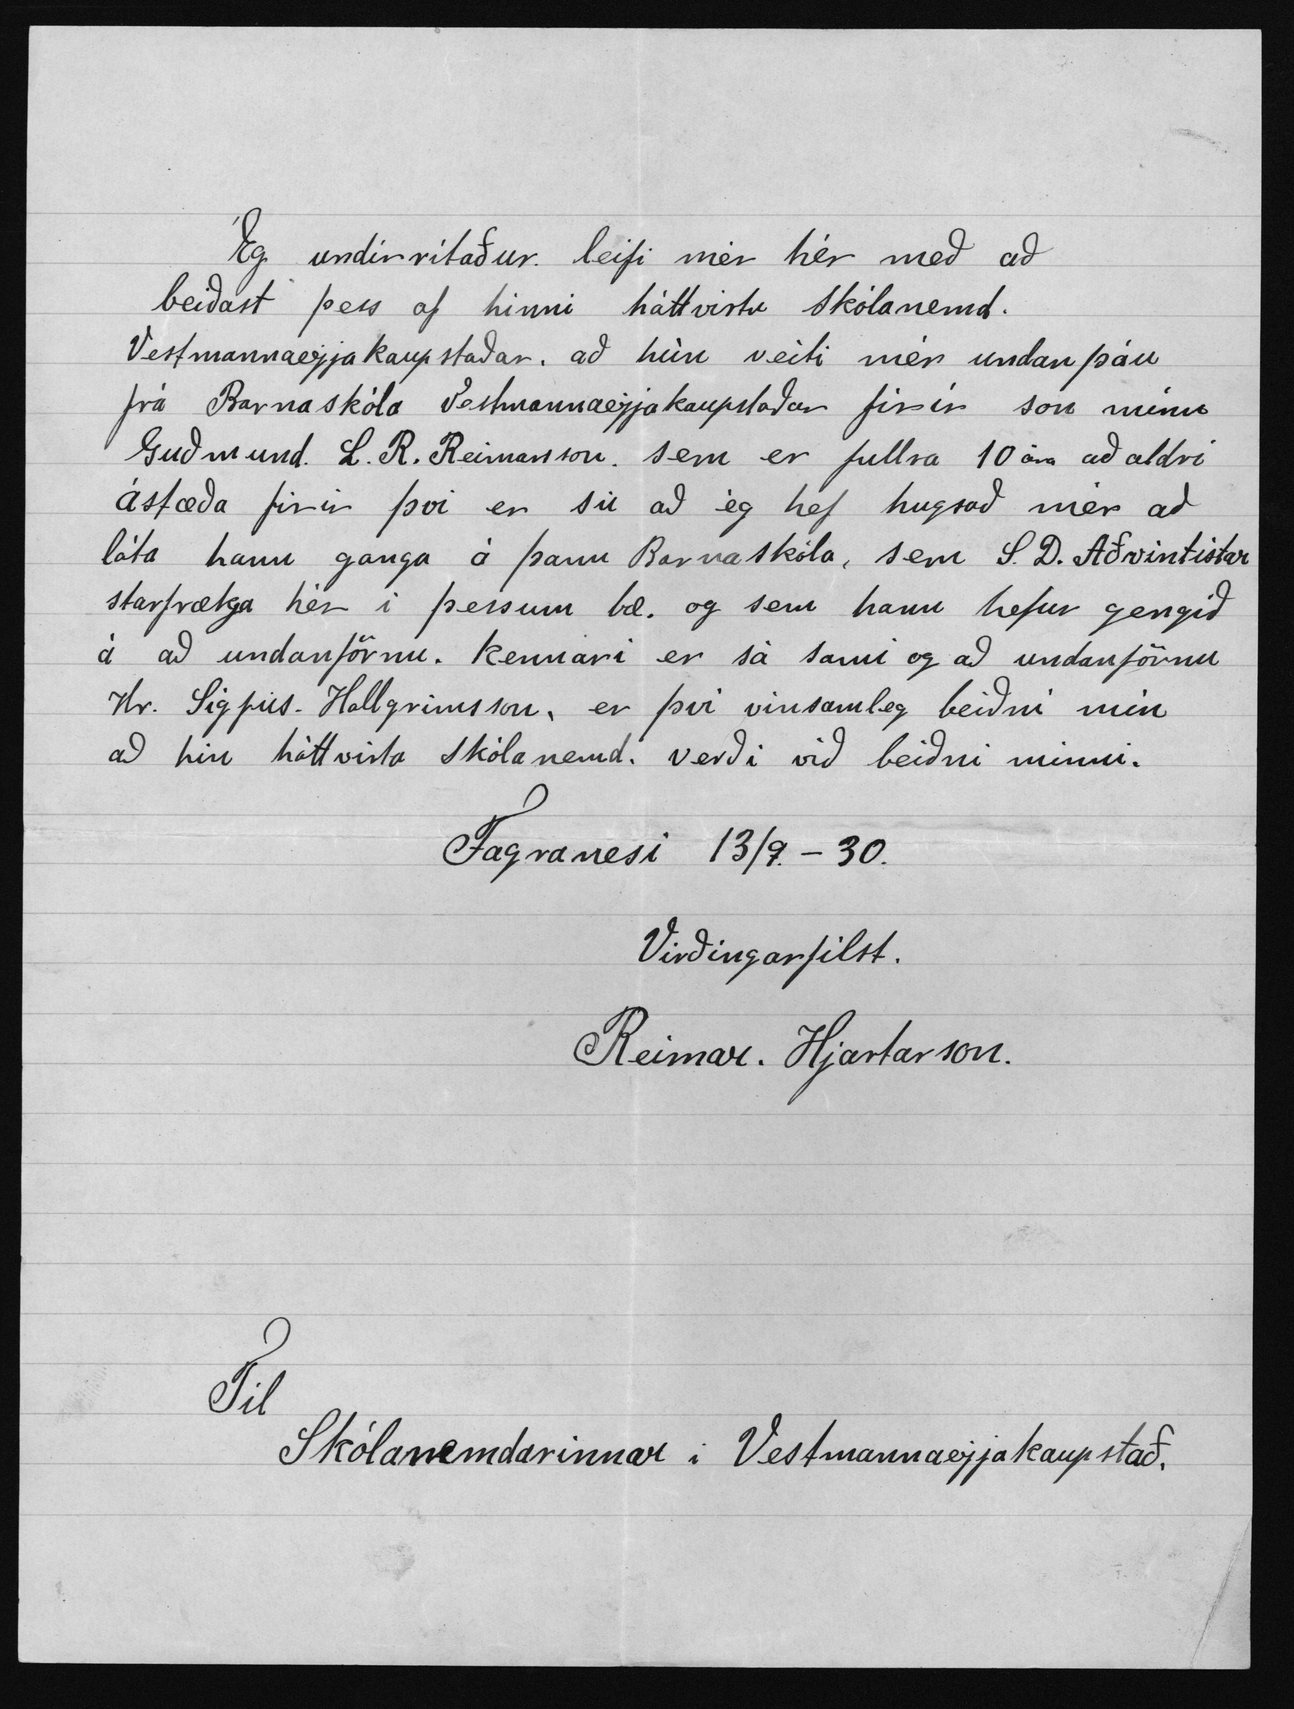 Ég undirritaður. leifi mér hér með að
beiðast þess af hinni háttvirtu skólanemd.
Vestmannaeyjakaupstaðar. að hún veiti mér undanþáu
frá Barnaskóla Vestmannaeyjakaupstaðar firir son minn
Guðmund. L. R. Reimarsson. sem er fullra 10 ára að aldri
ástæða firir því er sú að ég hef hugsað mér að
láta hann ganga á þann Barnaskóla, sem S. D. Aðvintistar
starfrækja hér í þessum bæ. og sem hann hefur gengið
á að undanförnu. kennari er sá sami og að undanförnu
Hr. Sigfús. Hallgrimsson, er því vinsamleg beiðni mín
að hin háttvirta skólanemd. verði við beiðni minni.
Fagranesi 13/9. – 30.
Virðingarfilst.
Reimar. Hjartarson.
Til
Skólanemdarinnar i Vestmannaeyjakaupstað.